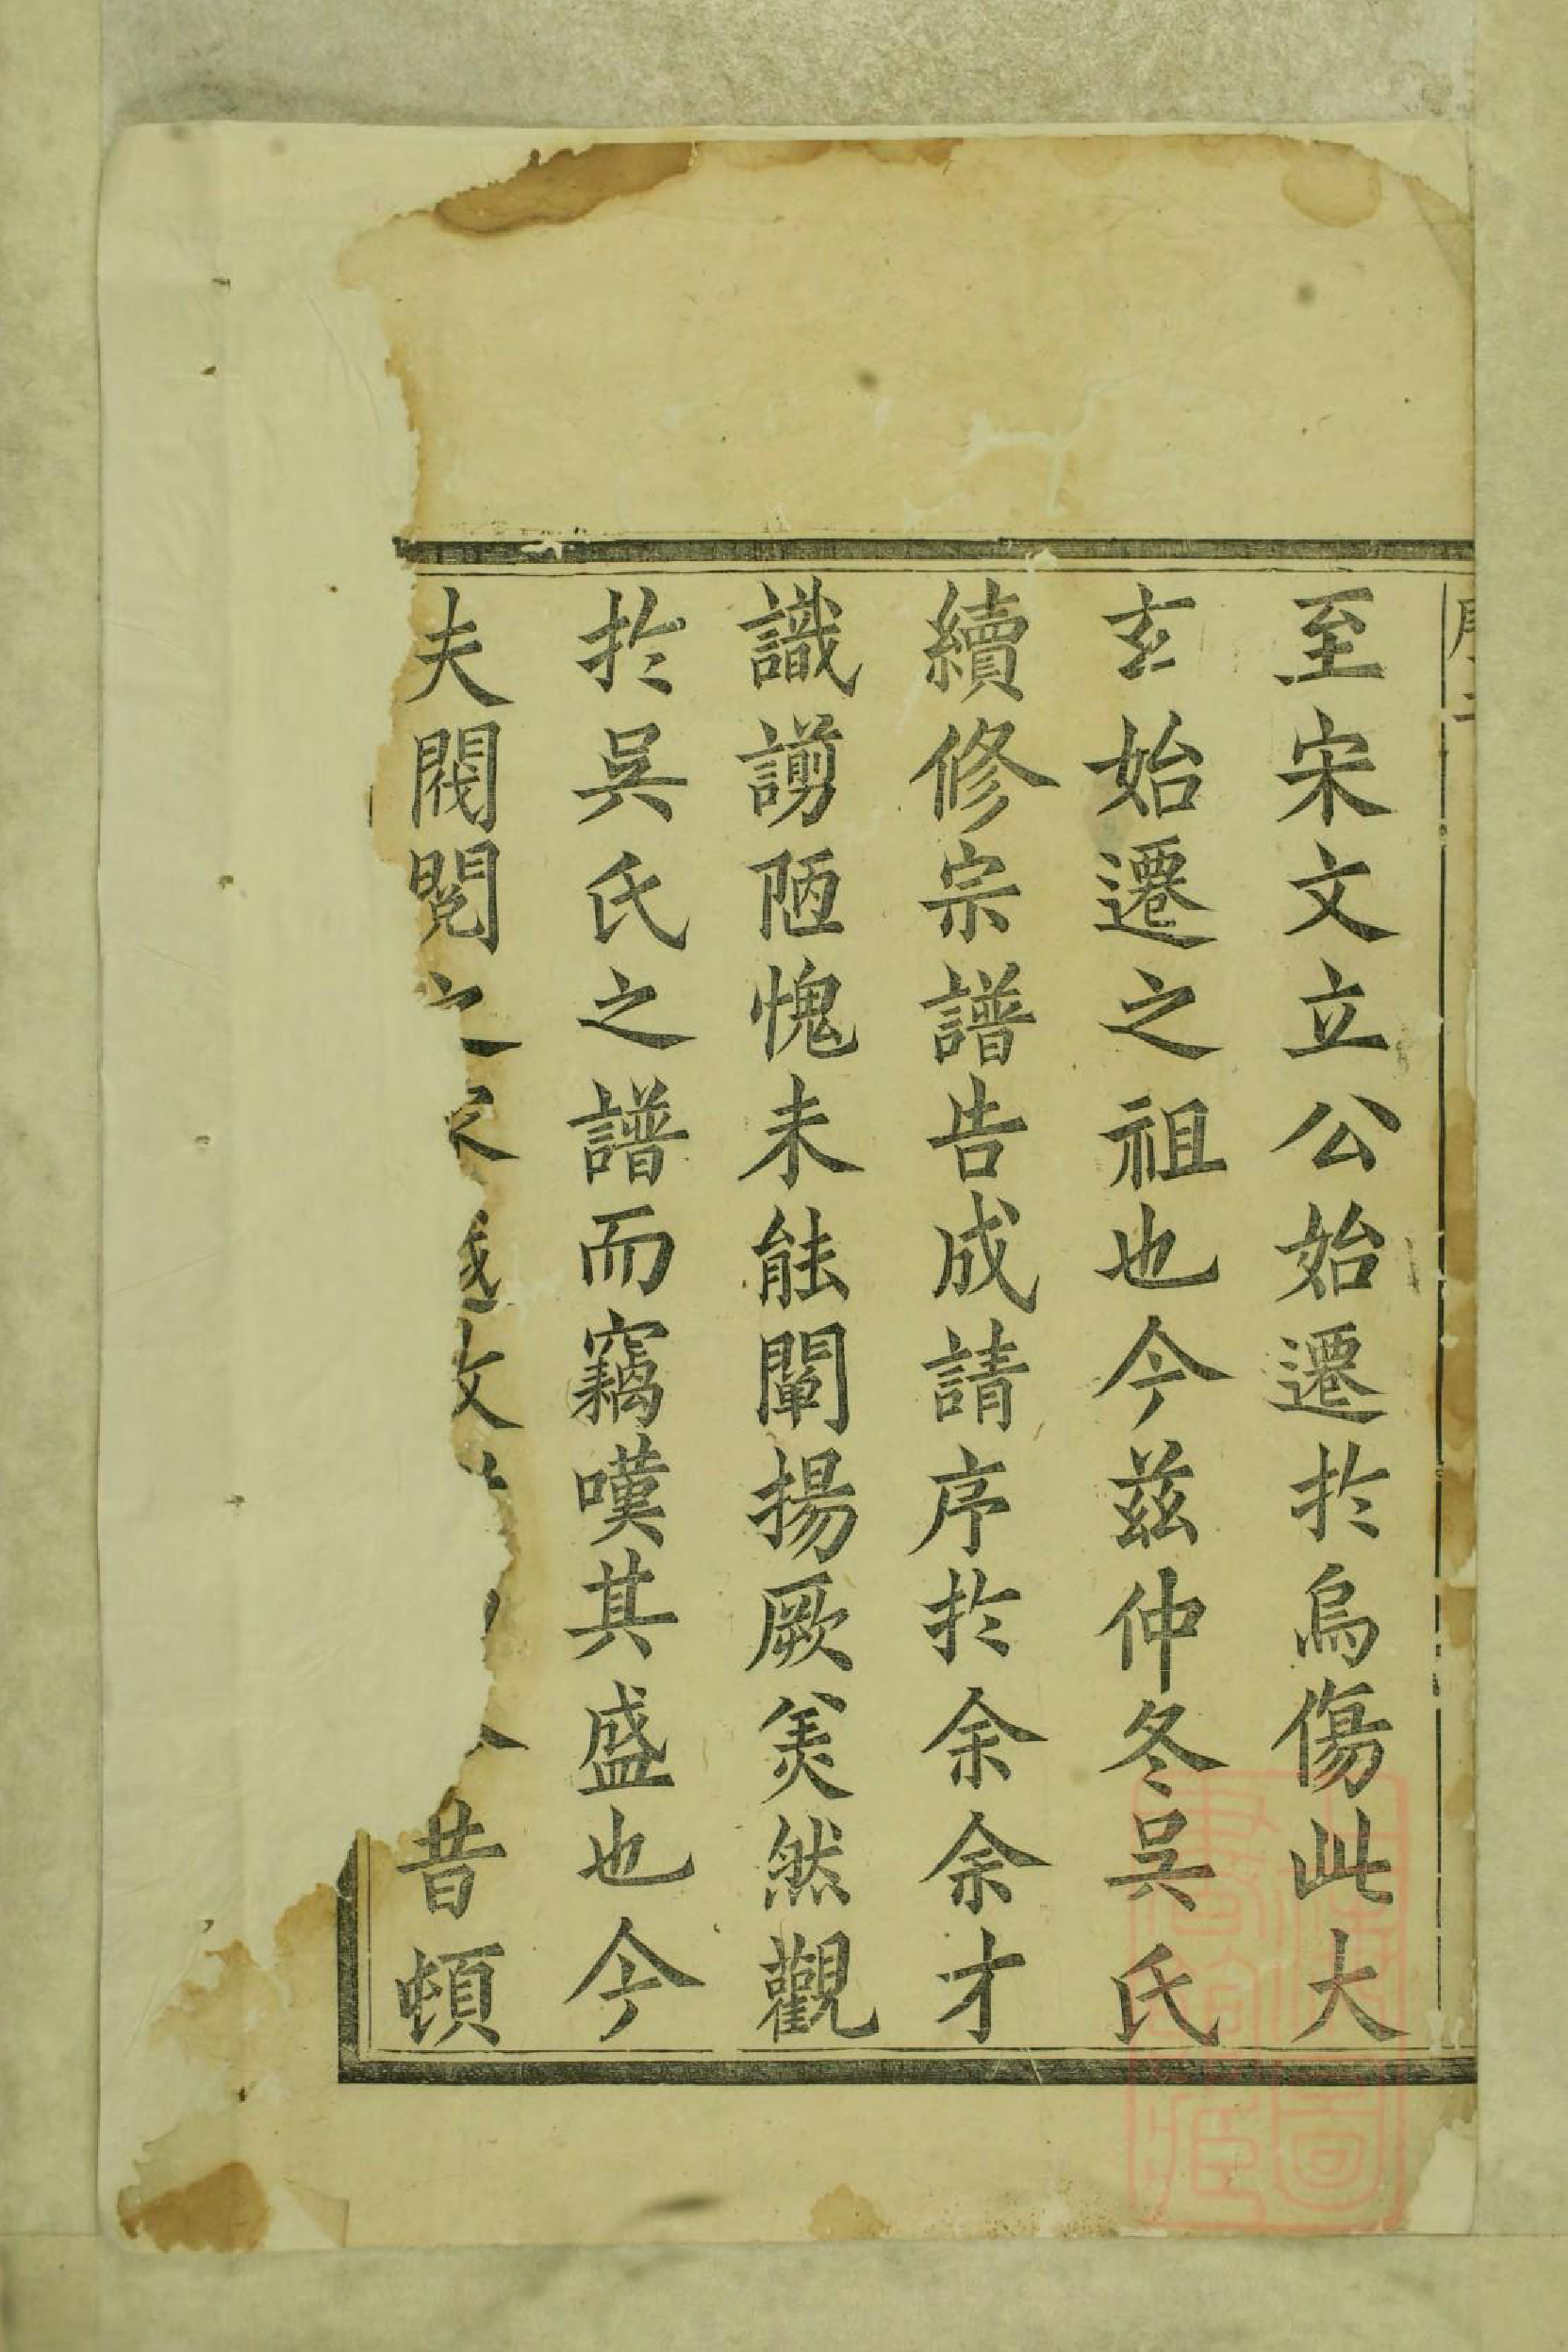 至宋文立公始遷於烏傷此大
玄始遷之祖也今兹仲冬吳氏
續修宗譜告成請序於余余才
識謭陋愧未能闡揚厥美然觀
於吳氏之譜而竊嘆其盛也今
夫閥閱之 昔頓